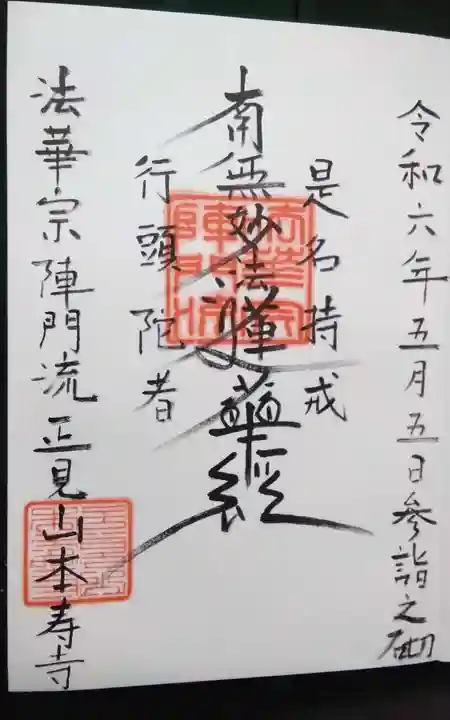 令和六年五月五日参詣之砌
是名持戒
南無妙法蓮華経
行頭陀者
法華宗陣門流正見山本寿寺